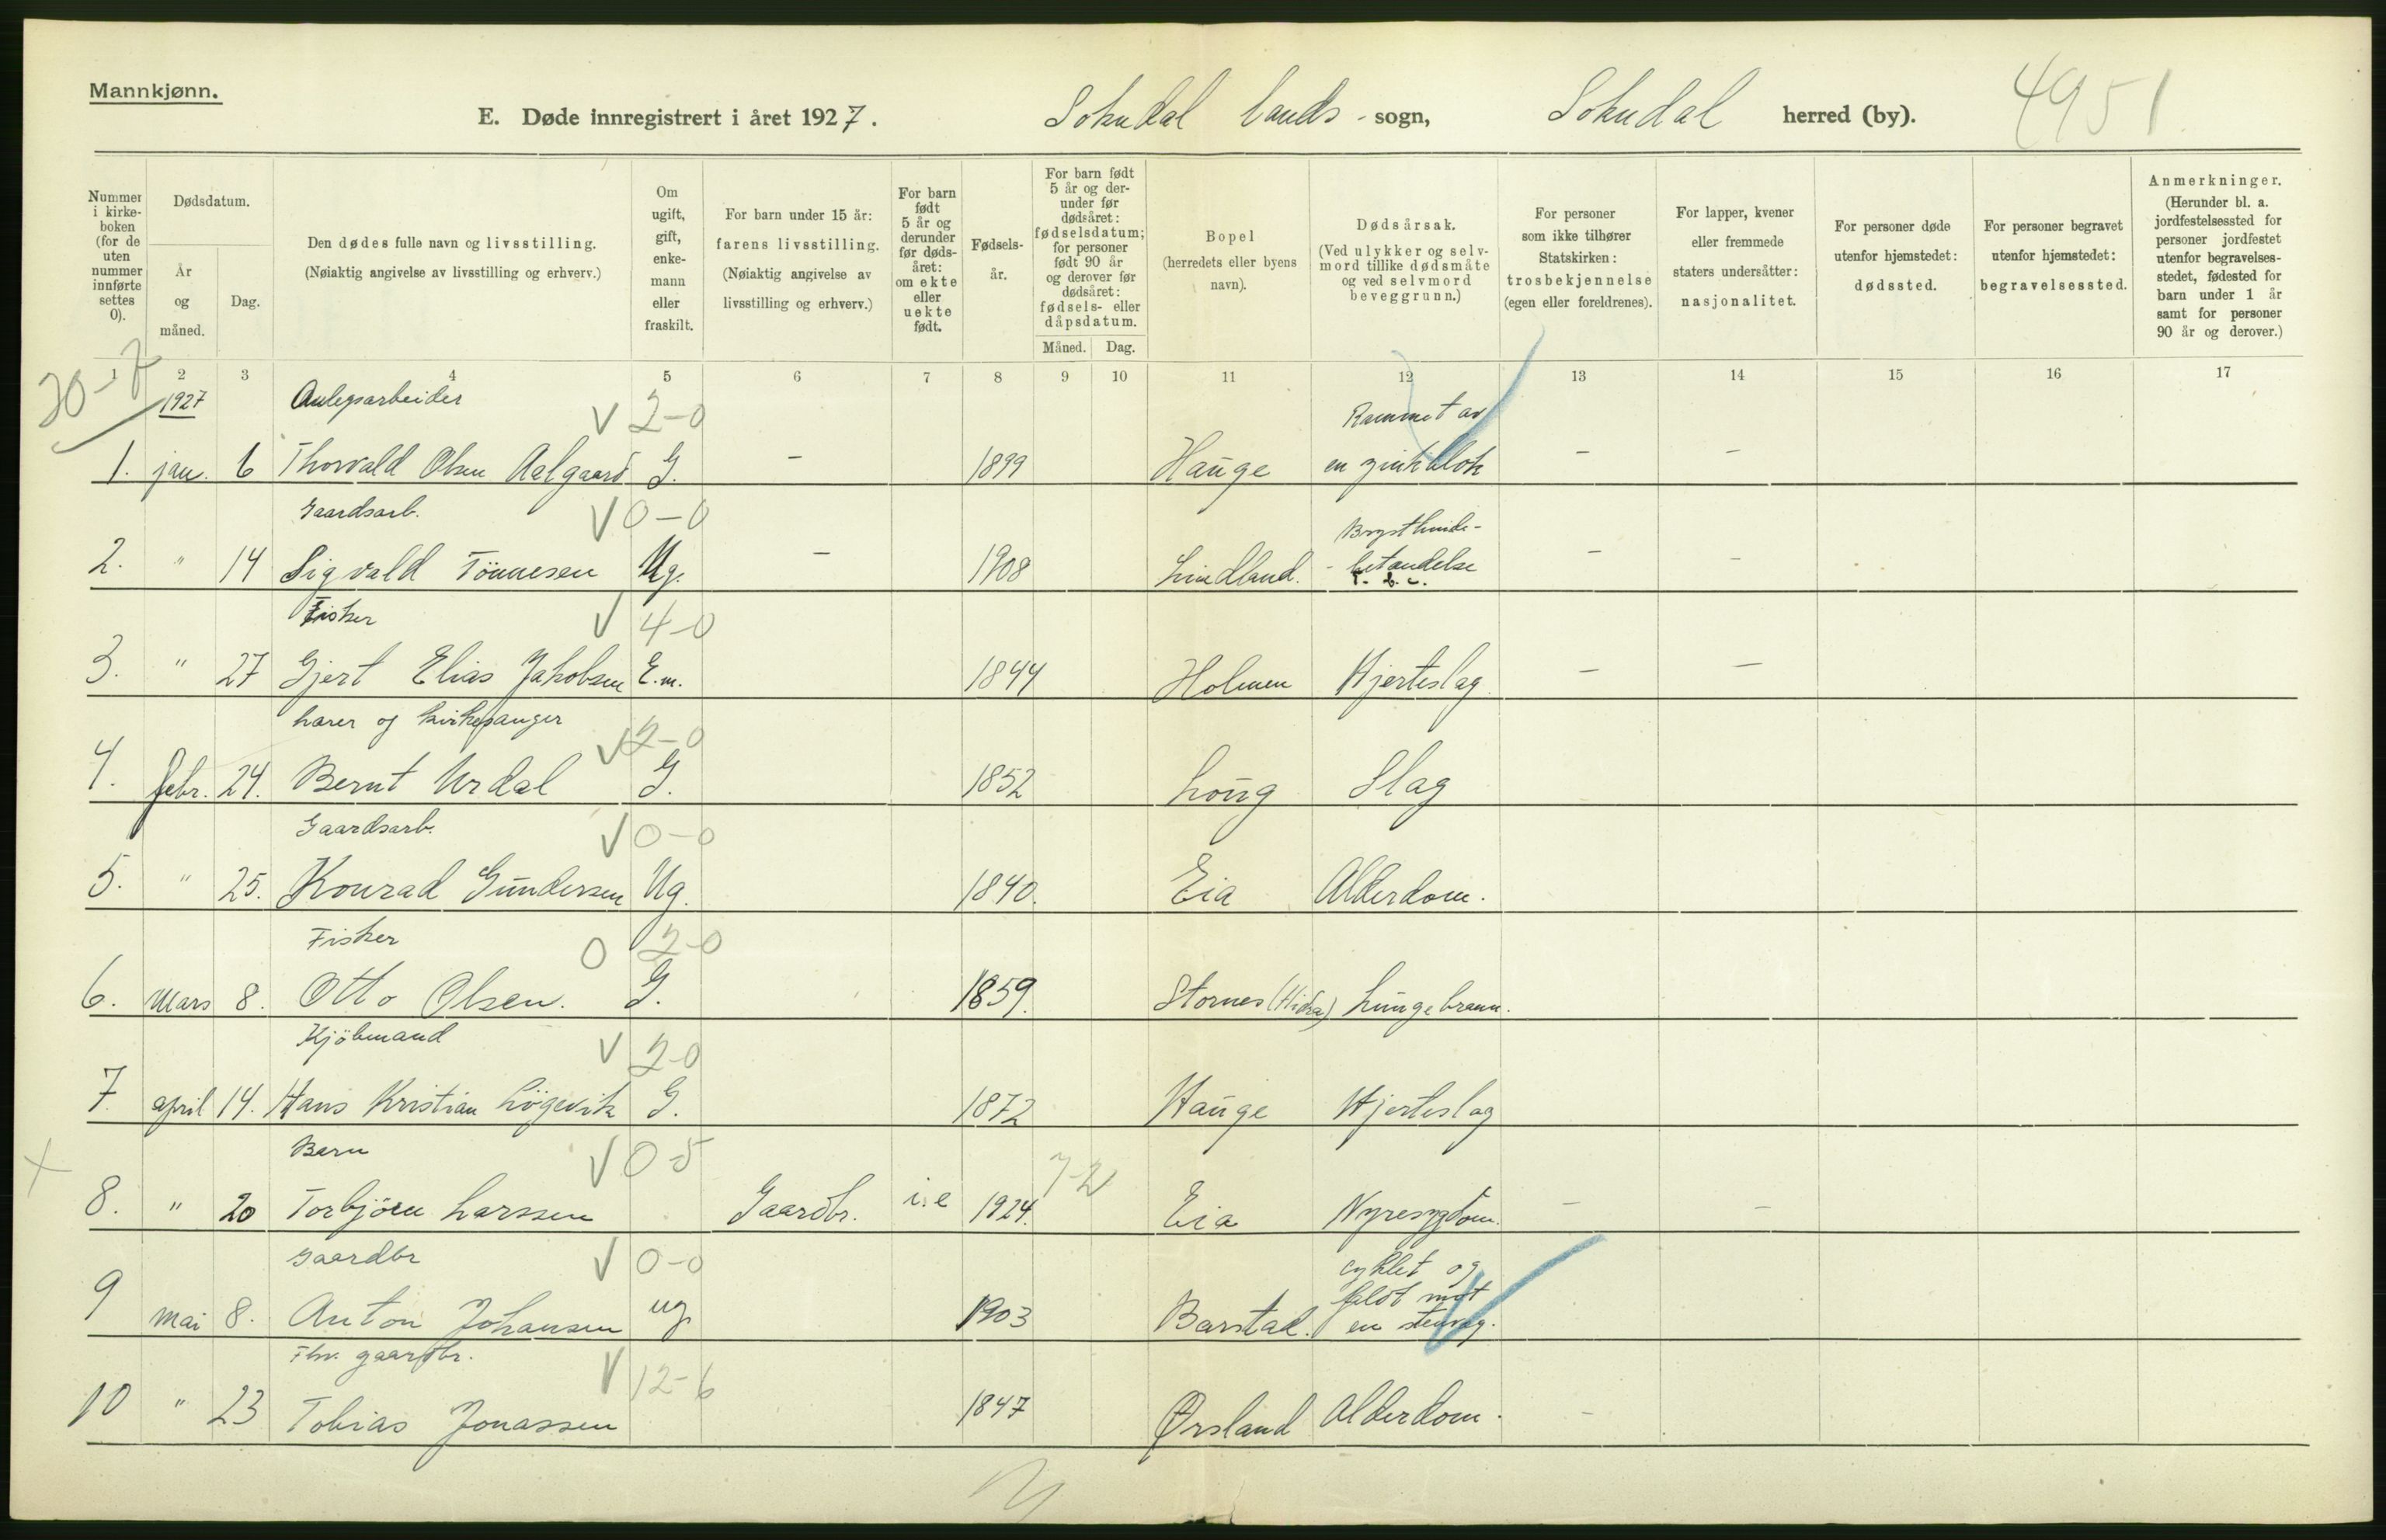 Mannkjønn.
E. Døde innregistrert i året 1927. Sokndal lands - sogn, Sokndal herred (by). 4951
Nummer i kirke- boken (for de uten nummer innførte settes 0).
Dødsdatum.
År og måned.
Dag.
Den dødes fulle navn og livsstilling.
(Nøiaktig angivelse av livsstilling og erhverv.)
Om ugift, gift, enke- mann eller fraskilt.
For barn under 15 år: farens livsstilling.
(Nøiaktig angivelse av livsstilling og erhverv.)
For barn født 5 år og derunder før døds- året: om ekte eller uekte født.
Fødsels- år.
For barn født 5 år og der- under før dødsåret: fødselsdatum; for personer født 90 år og derover før dødsåret: fødsels- eller dåpsdatum.
Måned. Dag.
Bopel
(herredets eller byens navn).
Dødsårsak.
(Ved ulykker og selv- mord tillike dødsmåte og ved selvmord beveggrunn.)
For personer som ikke tilhører Statskirken: trosbekjennelse (egen eller foreldrenes).
For lapper, kvener eller fremmede staters undersåtter: nasjonalitet.
For personer døde utenfor hjemstedet: dødssted.
For personer begravet utenfor hjemstedet: begravelsessted.
Anmerkninger.
(Herunder bl. a. jordfestelsessted for personer jordfestet utenfor begravelses- stedet, fødested for barn under 1 år samt for personer 90 år og derover.)
1 2 3 4 5 6 7 8 9 10 11 12 13 14 15 16 17
30-7
1927 Anlegsarbeider V 2-0 Rammet av
1. jan. 6 Thorvald Olsen Aalgaard G. - 1899 Hauge en zinkblok - -
Gaardsarb. V 0-0 Brysthinde-
2. " 14 Sigvald Tönnesen Ug. - 1908 Lindland. - betændelse - -
T. b. c.
Fisker V 4-0
3. " 27 Gjert Elias Jakobsen E.m. 1844 Holmen Hjerteslag. - -
Lærer og kirkesanger V 2-0
4. febr. 24. Bernt Urdal G. 1852 Loug Slag
Gaardsarb. V 0-0
5. " 25. Konrad Gundersen Ug. 1840. Eia Alderdom.
Fisker 0 2-0
6. Mars 8. Otto Olsen. G. 1859. Stornes (Hidra) Lungebrann.
Kjöbmand V 2-0
7. april 14. Hans Kristian Lögevik G. 1872 Hauge Hjerteslag
Barn V 0-5 7-2
8. " 20 Torbjörn Larssen Gaardbr. i.e 1924. Eia Nyresygdom. - -
Gaardbr V 0-0 cyklet og
faldt mot
9 Mai 8. Anton Johansen ug. 1903 Barstad. en stenveg.
Fhv. gaardbr. V 12-6
10 " 23 Tobias Jonassen 1847 Ørsland Alderdom. -